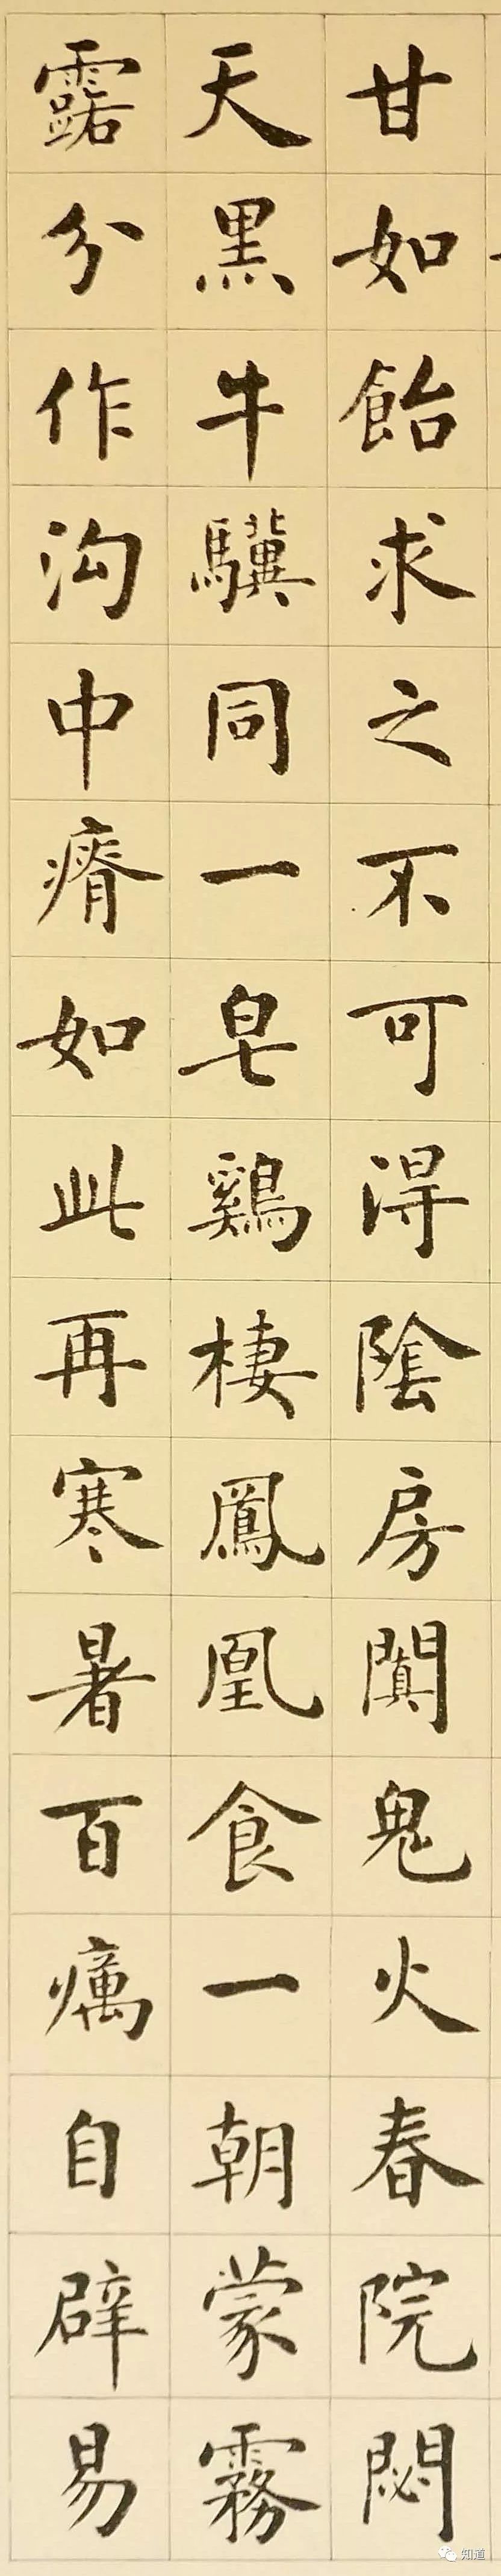 甘如飴求之不可得陰房闃鬼火春院閟
天黑牛驥同一皂鷄棲鳳凰食一朝蒙霧
露分作沟中瘠如此再寒暑百癘自辟易
知道